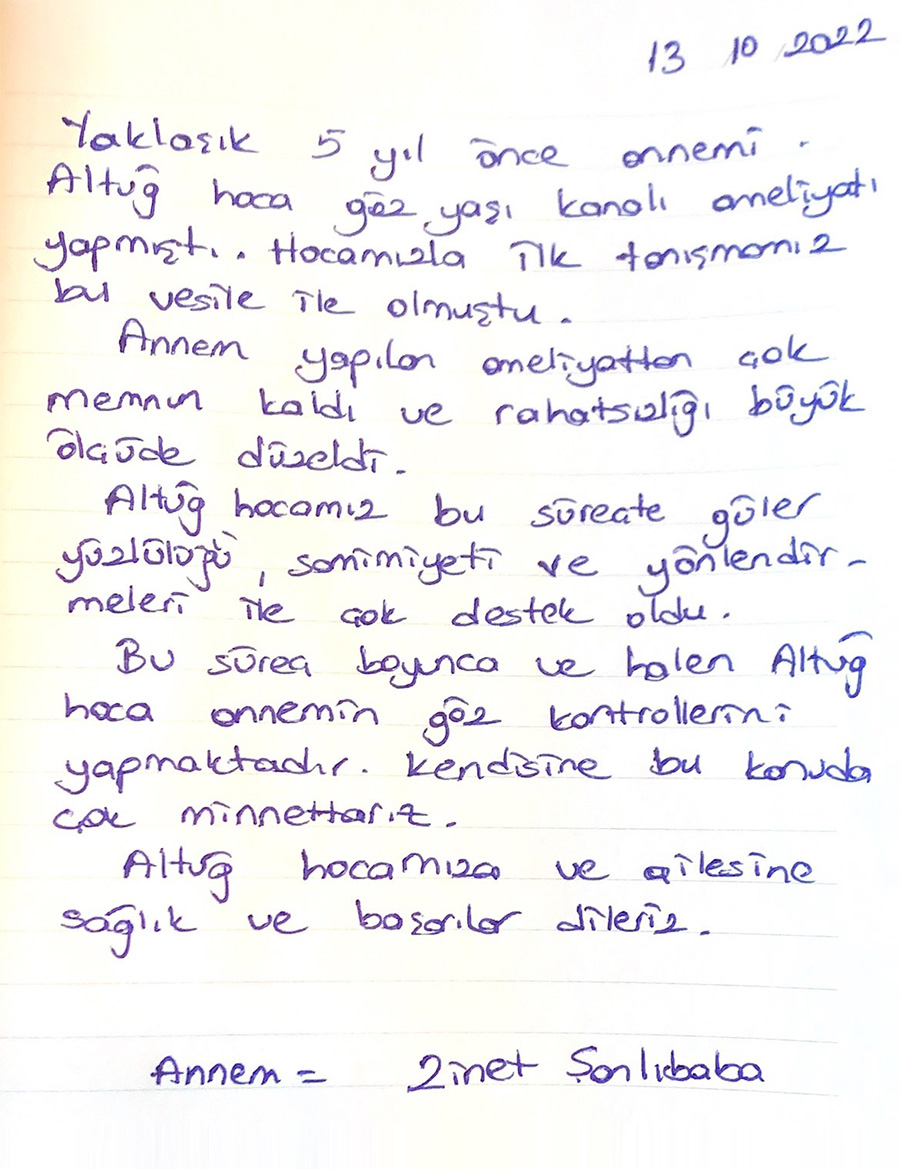 13 10 2022
Yaklaşık 5 yıl önce annemi.
Altuğ hoca göz yaşı kanalı ameliyatı
yapmıştı.. Hocamızla ilk tanışmamız
bu vesile ile olmuştu.
Annem yapılan ameliyattan çok
memnun kaldı ve rahatsızlığı büyük
ölçüde düzeldi.
Altuğ hocamız bu süreçte güler
yüzlülüğü, samimiyeti ve yönlendir-
meleri ile çok destek oldu.
Bu süreç boyunca ve halen Altuğ
hoca annemin göz kontrollerini
yapmaktadır. Kendisine bu konuda
çok minnettarız.
Altuğ hocamıza ve ailesine
sağlık ve başarılar dileriz.
Annem = Zinet Şanlıbaba